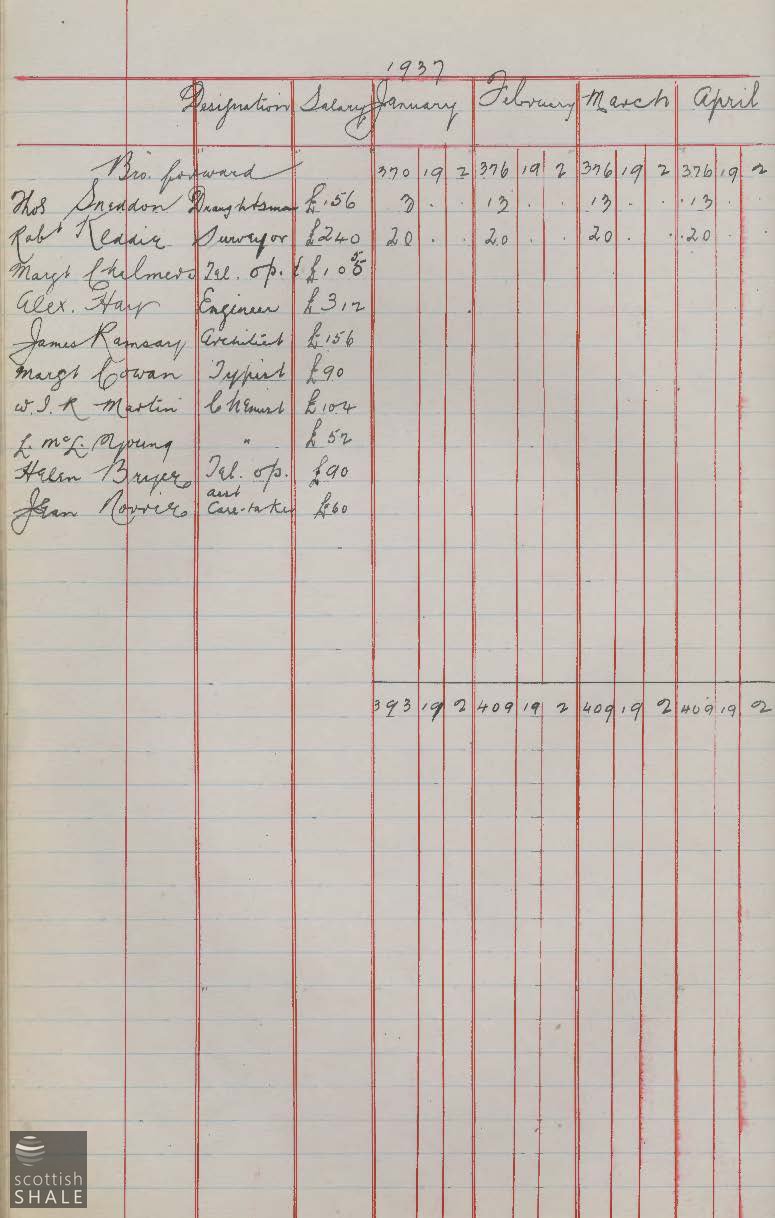 1937
Designation Salary January February March April
Bro. forward 370 19 2 376 19 2 376 19 2 376 19 2
Thos Sneddon Draughtsman £156 3 . . 13 . . 13 . . 13 . .
Robt Keddie Surveyor £240 20 . . 20 . . 20 . . 20 . .
Margt Chalmers Tel. op. £105
Alex. Hay Engineer £312
James Ramsay Architect £156
Margt Cowan Typist £90
W. I. R Martin Chemist £104
L. McL. Young " £52
Helen Bryce Tel. op. £90
Jean Norrie asst Care-taker £60
393 19 2 409 19 2 409 19 2 409 19 2
scottish
SHALE